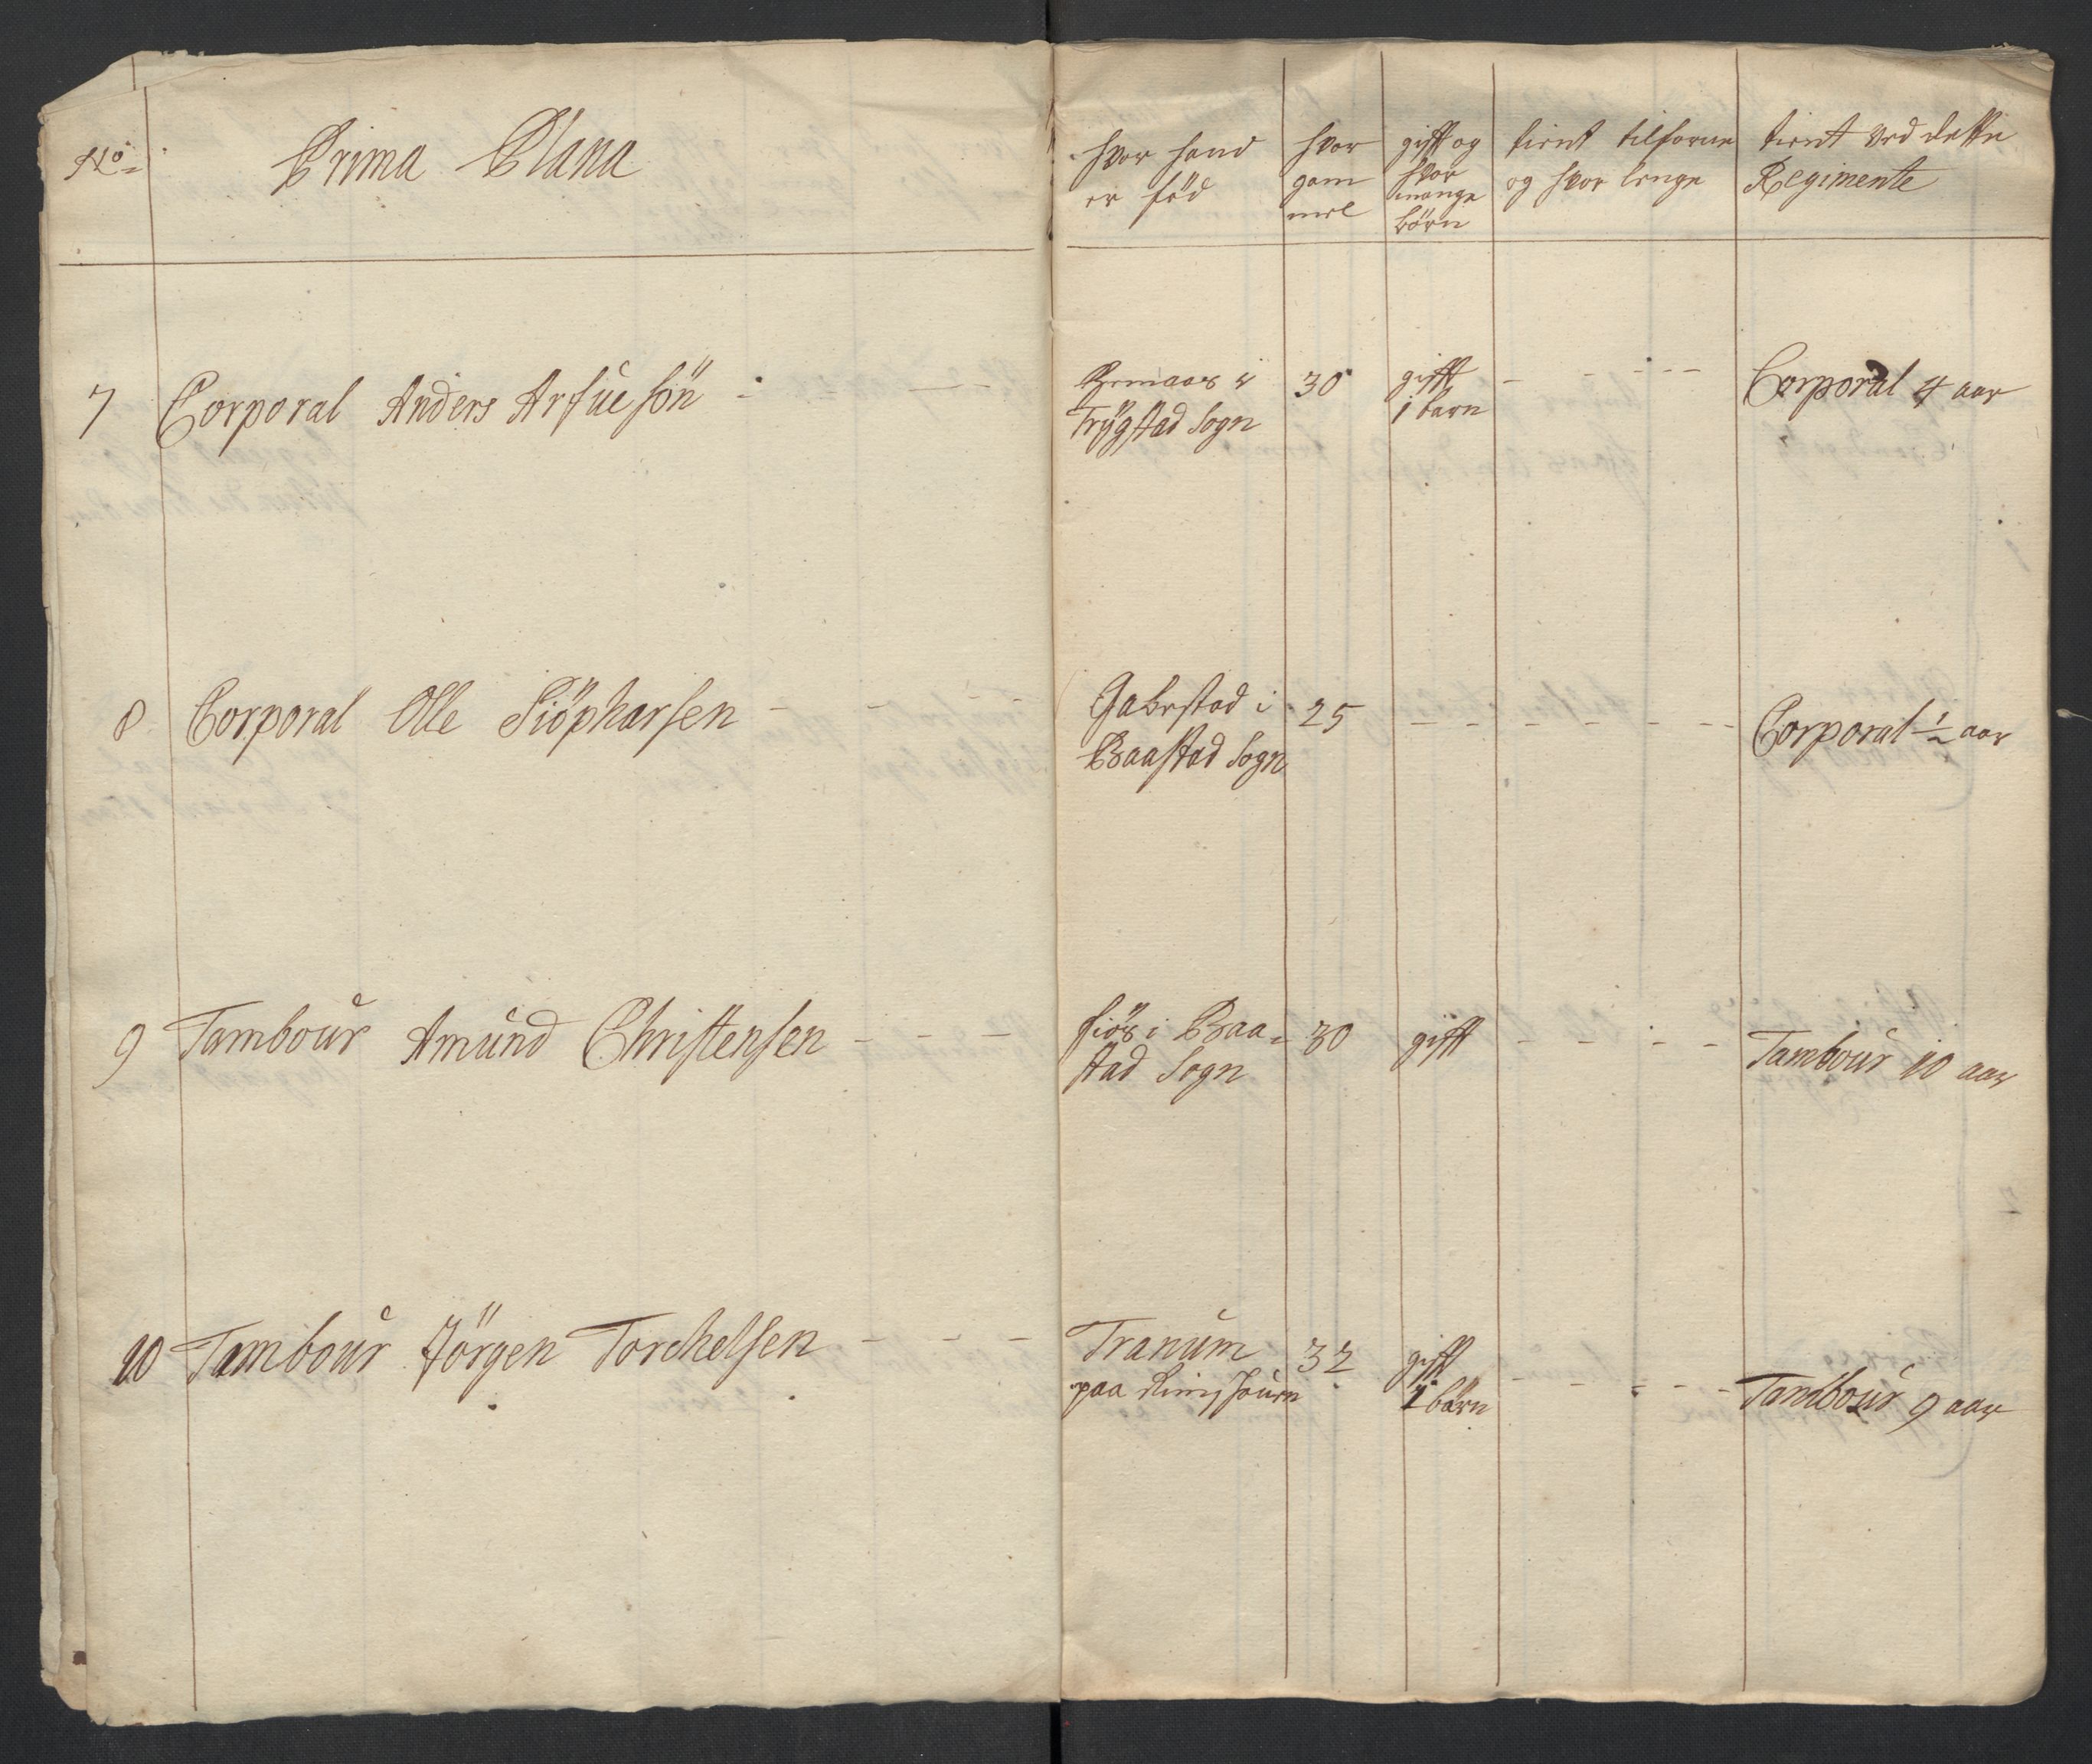 No
Prima Plana
hvor hand
er föd
hvor
gam
mel
gifft og
hvor
mange
börn
tient tilforne
og hvor lenge
tient ved dette
Regimente
7 Corporal Anders Arfuesön
i
Trÿgstad Sogn
30
gifft
1 barn
Corporal 4 aar
8 Corporal Olle Siöpharsen
Gabestad i
Baastad Sogn
25
Corporal ½ aar
9 Tambour Amund Christensen
i Baa=
stad Sogn
30
gifft
Tambour 10 aar
10 Tambour Jörgen Torchelsen
Tranum
paa
32
gifft
börn
Tambour 9 aar